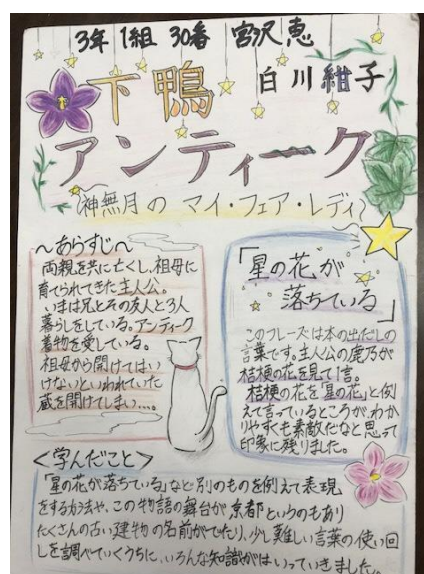 3年 1組 30番 宮沢 恵
下鴨
白川紺子
アンティーク
〜神無月の マイ・フェア・レディ〜
〜あらすじ〜
両親を共に亡くし、祖母に
育てられてきた主人公。
いまは兄とその友人と3人
暮らしをしている。アンティーク
着物を愛している。
祖母から開けてはい
けないといわれていた
蔵を開けてしまい…。
「星の花が
落ちている」
このフレーズは本の出だしの
言葉です。主人公の鹿乃が
桔梗の花を見て一言。
桔梗の花を「星の花」と例
えて言っているところが、わか
りやすくも素敵だなと思って
印象に残りました。
<学んだこと>
「星の花が落ちている」など別のものを例えて表現
をする方法や、この物語の舞台が京都というのもあり
たくさんの古い建物の名前がでたり、少し難しい言葉の使い回
しを調べていくうちに、いろんな知識がはいっていきました。